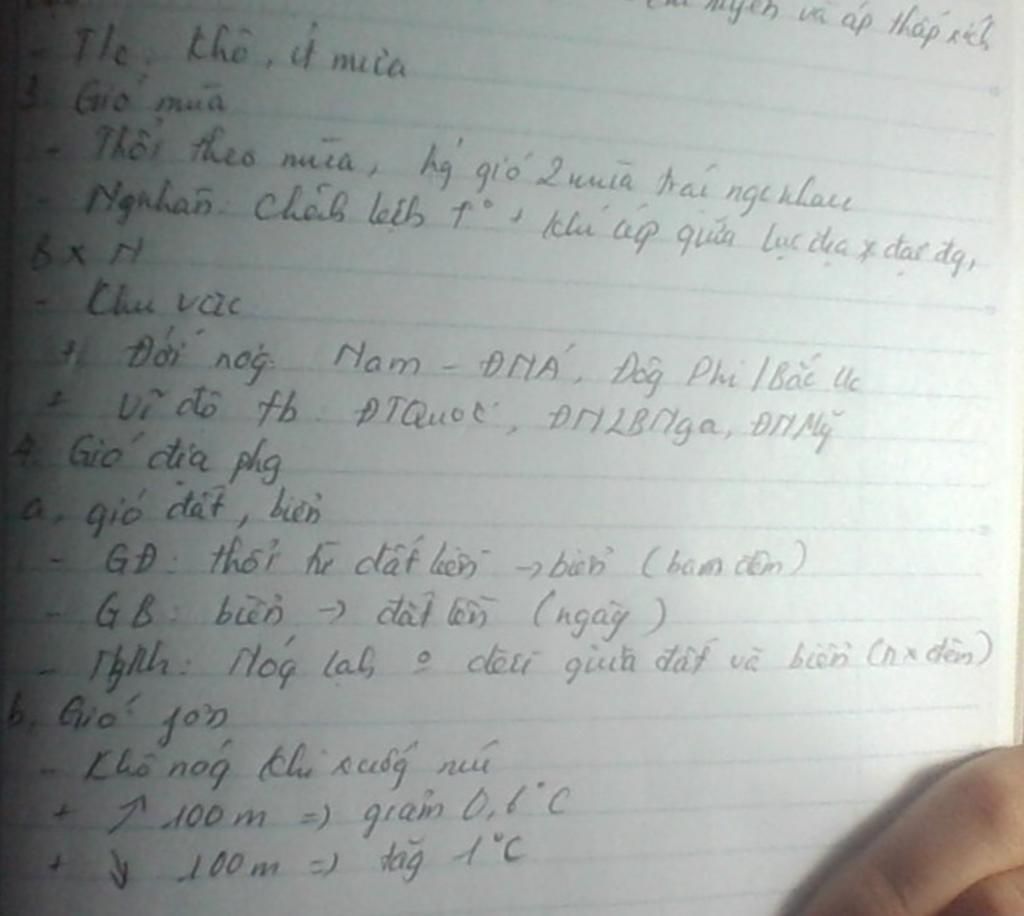 huyến và áp thấp xích
- T/c: khô, ít mưa
3. Gió mùa
- Thổi theo mùa, hg gió 2 mùa trái ngc nhau
- Ng nhân: Chênh lệch t°, khí áp giữa lục địa x đại dg,
B x N
- Khu vực
+ Đới nóg: Nam - ĐNÁ, Đôg Phi / Bắc Úc
+ Vĩ độ tb: ĐTQuốc, ĐNLBNga, ĐNMỹ
4. Gió địa phg
a, gió đất, biển
- GĐ: thổi từ đất liền -> biển (ban đêm)
- GB: biển -> đất liền (ngày)
- NgNh: Nóg lạh o đều giữa đất và biển (n x đêm)
b, Gió fơn
- Khô nóg khi xuốg núi
+ ↑ 100 m => giảm 0,6°C
+ ↓ 100 m => tăg 1°C